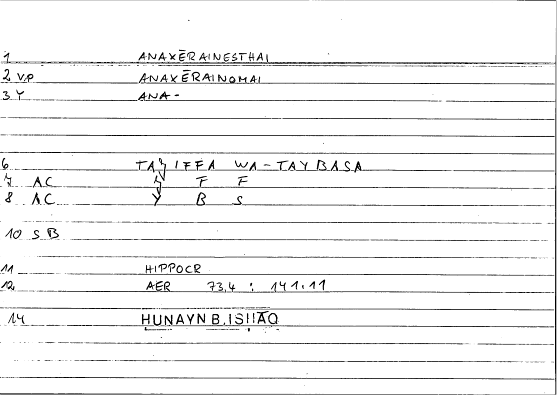 1 ANAXĒRAINESTHAI
2 V.P ANAXĒRAINOMAI
3 Y ANA-
6 TAǦIFFA WA-TAYBASA
7 AC Ǧ F F
8 AC Y B S
10 S B
11 HIPPOCR
12 AER 73,4 : 141,11
14 HUNAYN B. ISḤĀQ